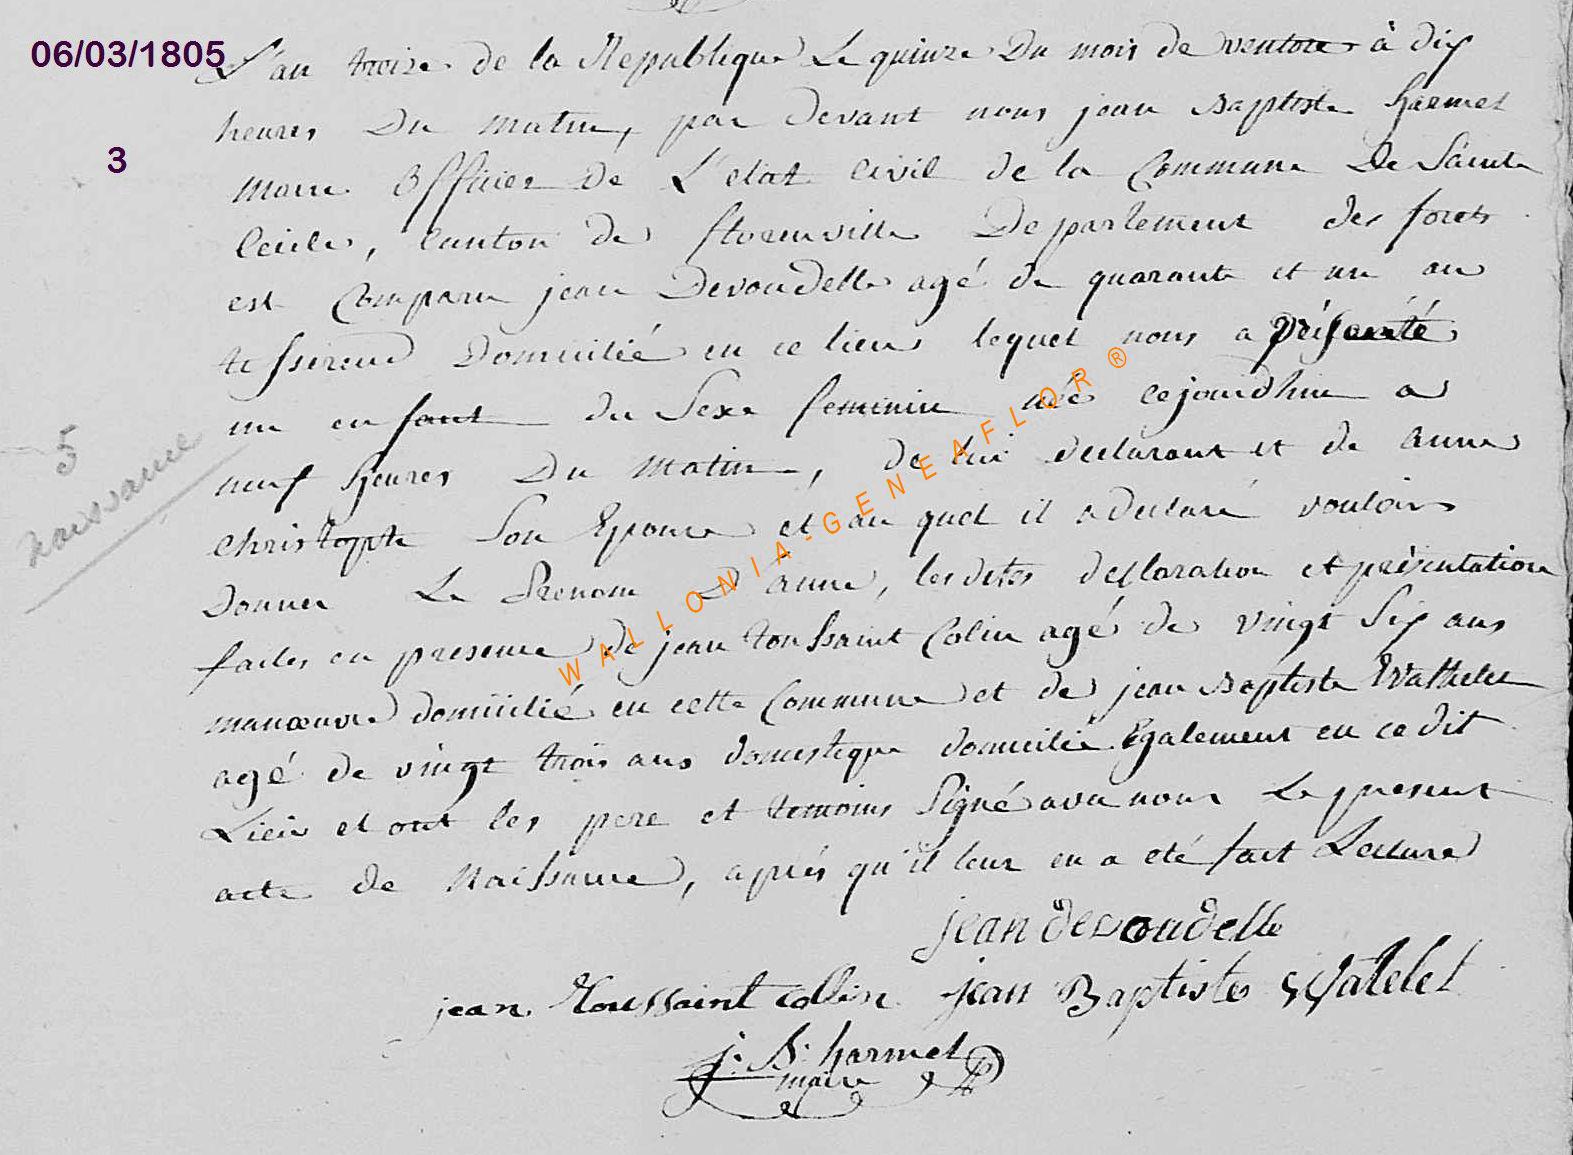 06/03/1805
L'an treize de la Republique Le quinze Du mois de ventose à dix
heures Du matin, par Devant nous jean Baptiste harmel
3
Maire Officier de L'etat Civil de la Commune De Sainte
Cecile, Canton de florenville Departement des forets
est Comparu jean Devoudelle agé de quarante et un an
tisserend Domicilié en ce lieu lequel nous a présenté
un enfant du Sexe feminin née cejourdhui a
5
naissance
neuf heures Du Matin, de lui declarant et de anne
christophe Son Epouse et au quel il a declaré vouloir
Donner Le Prenom D'anne, les dites declaration et présentation
faites en presence de jean toussaint Colin agé de vingt Six ans
manœuvre domicilié en cette Commune et de jean Baptiste Wathelet
agé de vingt trois ans domestique domicilié Egalement en ce dit
Lieu et ont les pere et temoins Signé avec nous Le present
acte de Naissance, après qu'il leur en a eté fait Lecture
jean devoudelle
jean Toussaint collin jean Baptiste Watelet
j: B: harmel
maire
WALLONIA-GENEAFLOR®